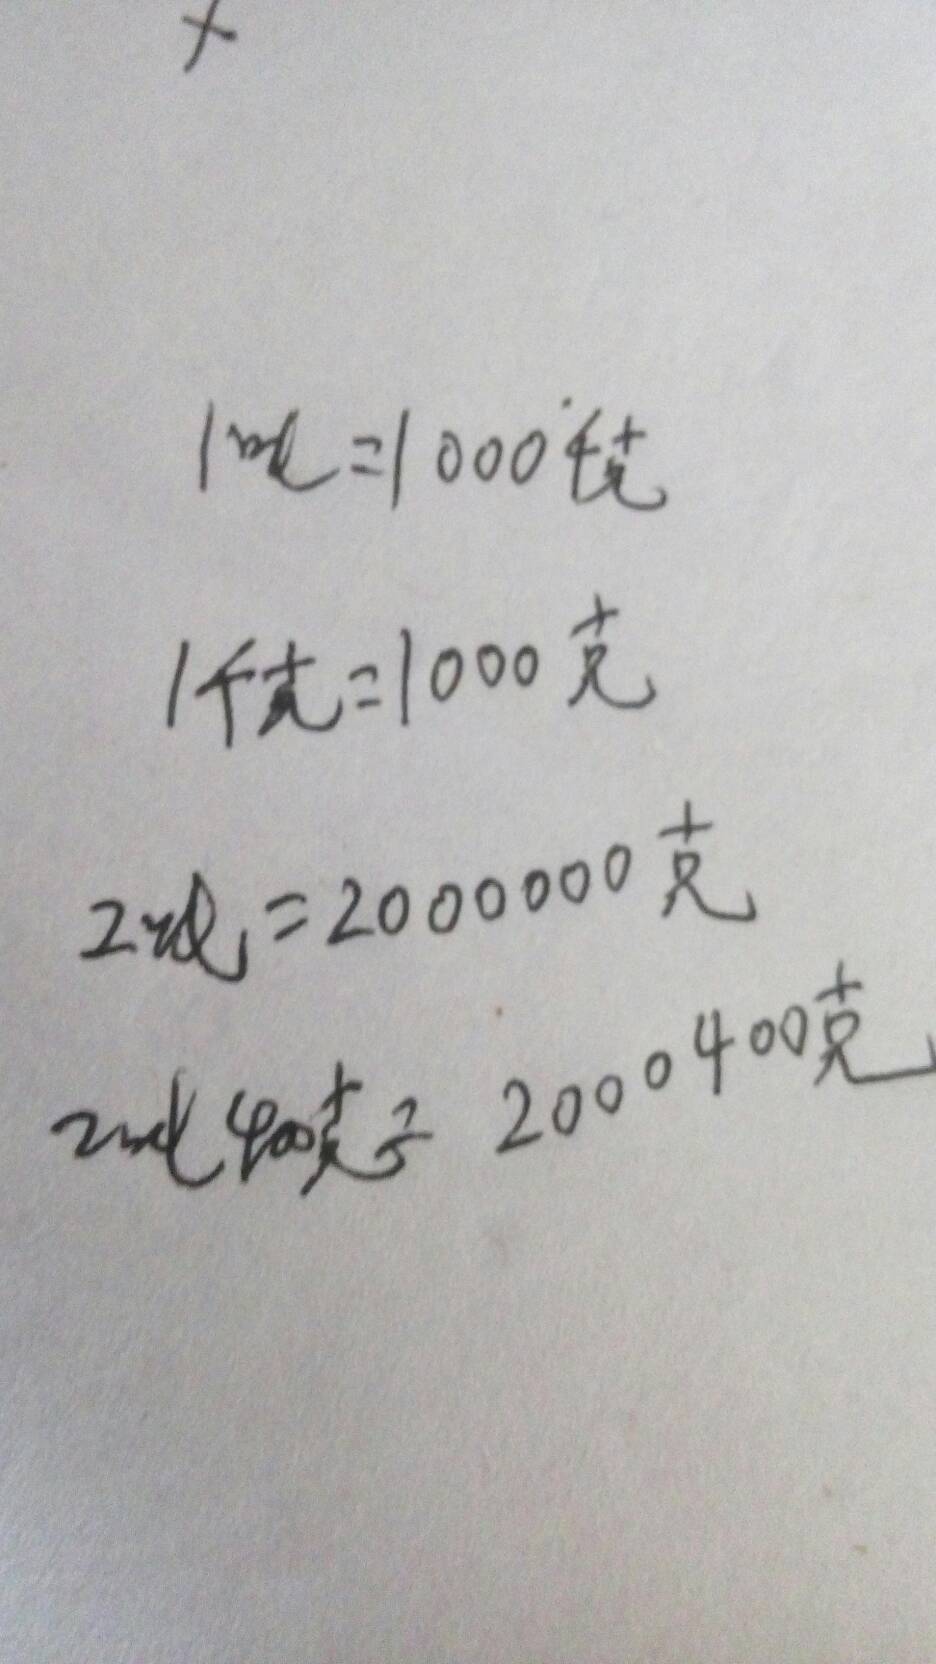 1吨=1000千克
1千克=1000克
2吨=2000000克
2吨400克=2000400克